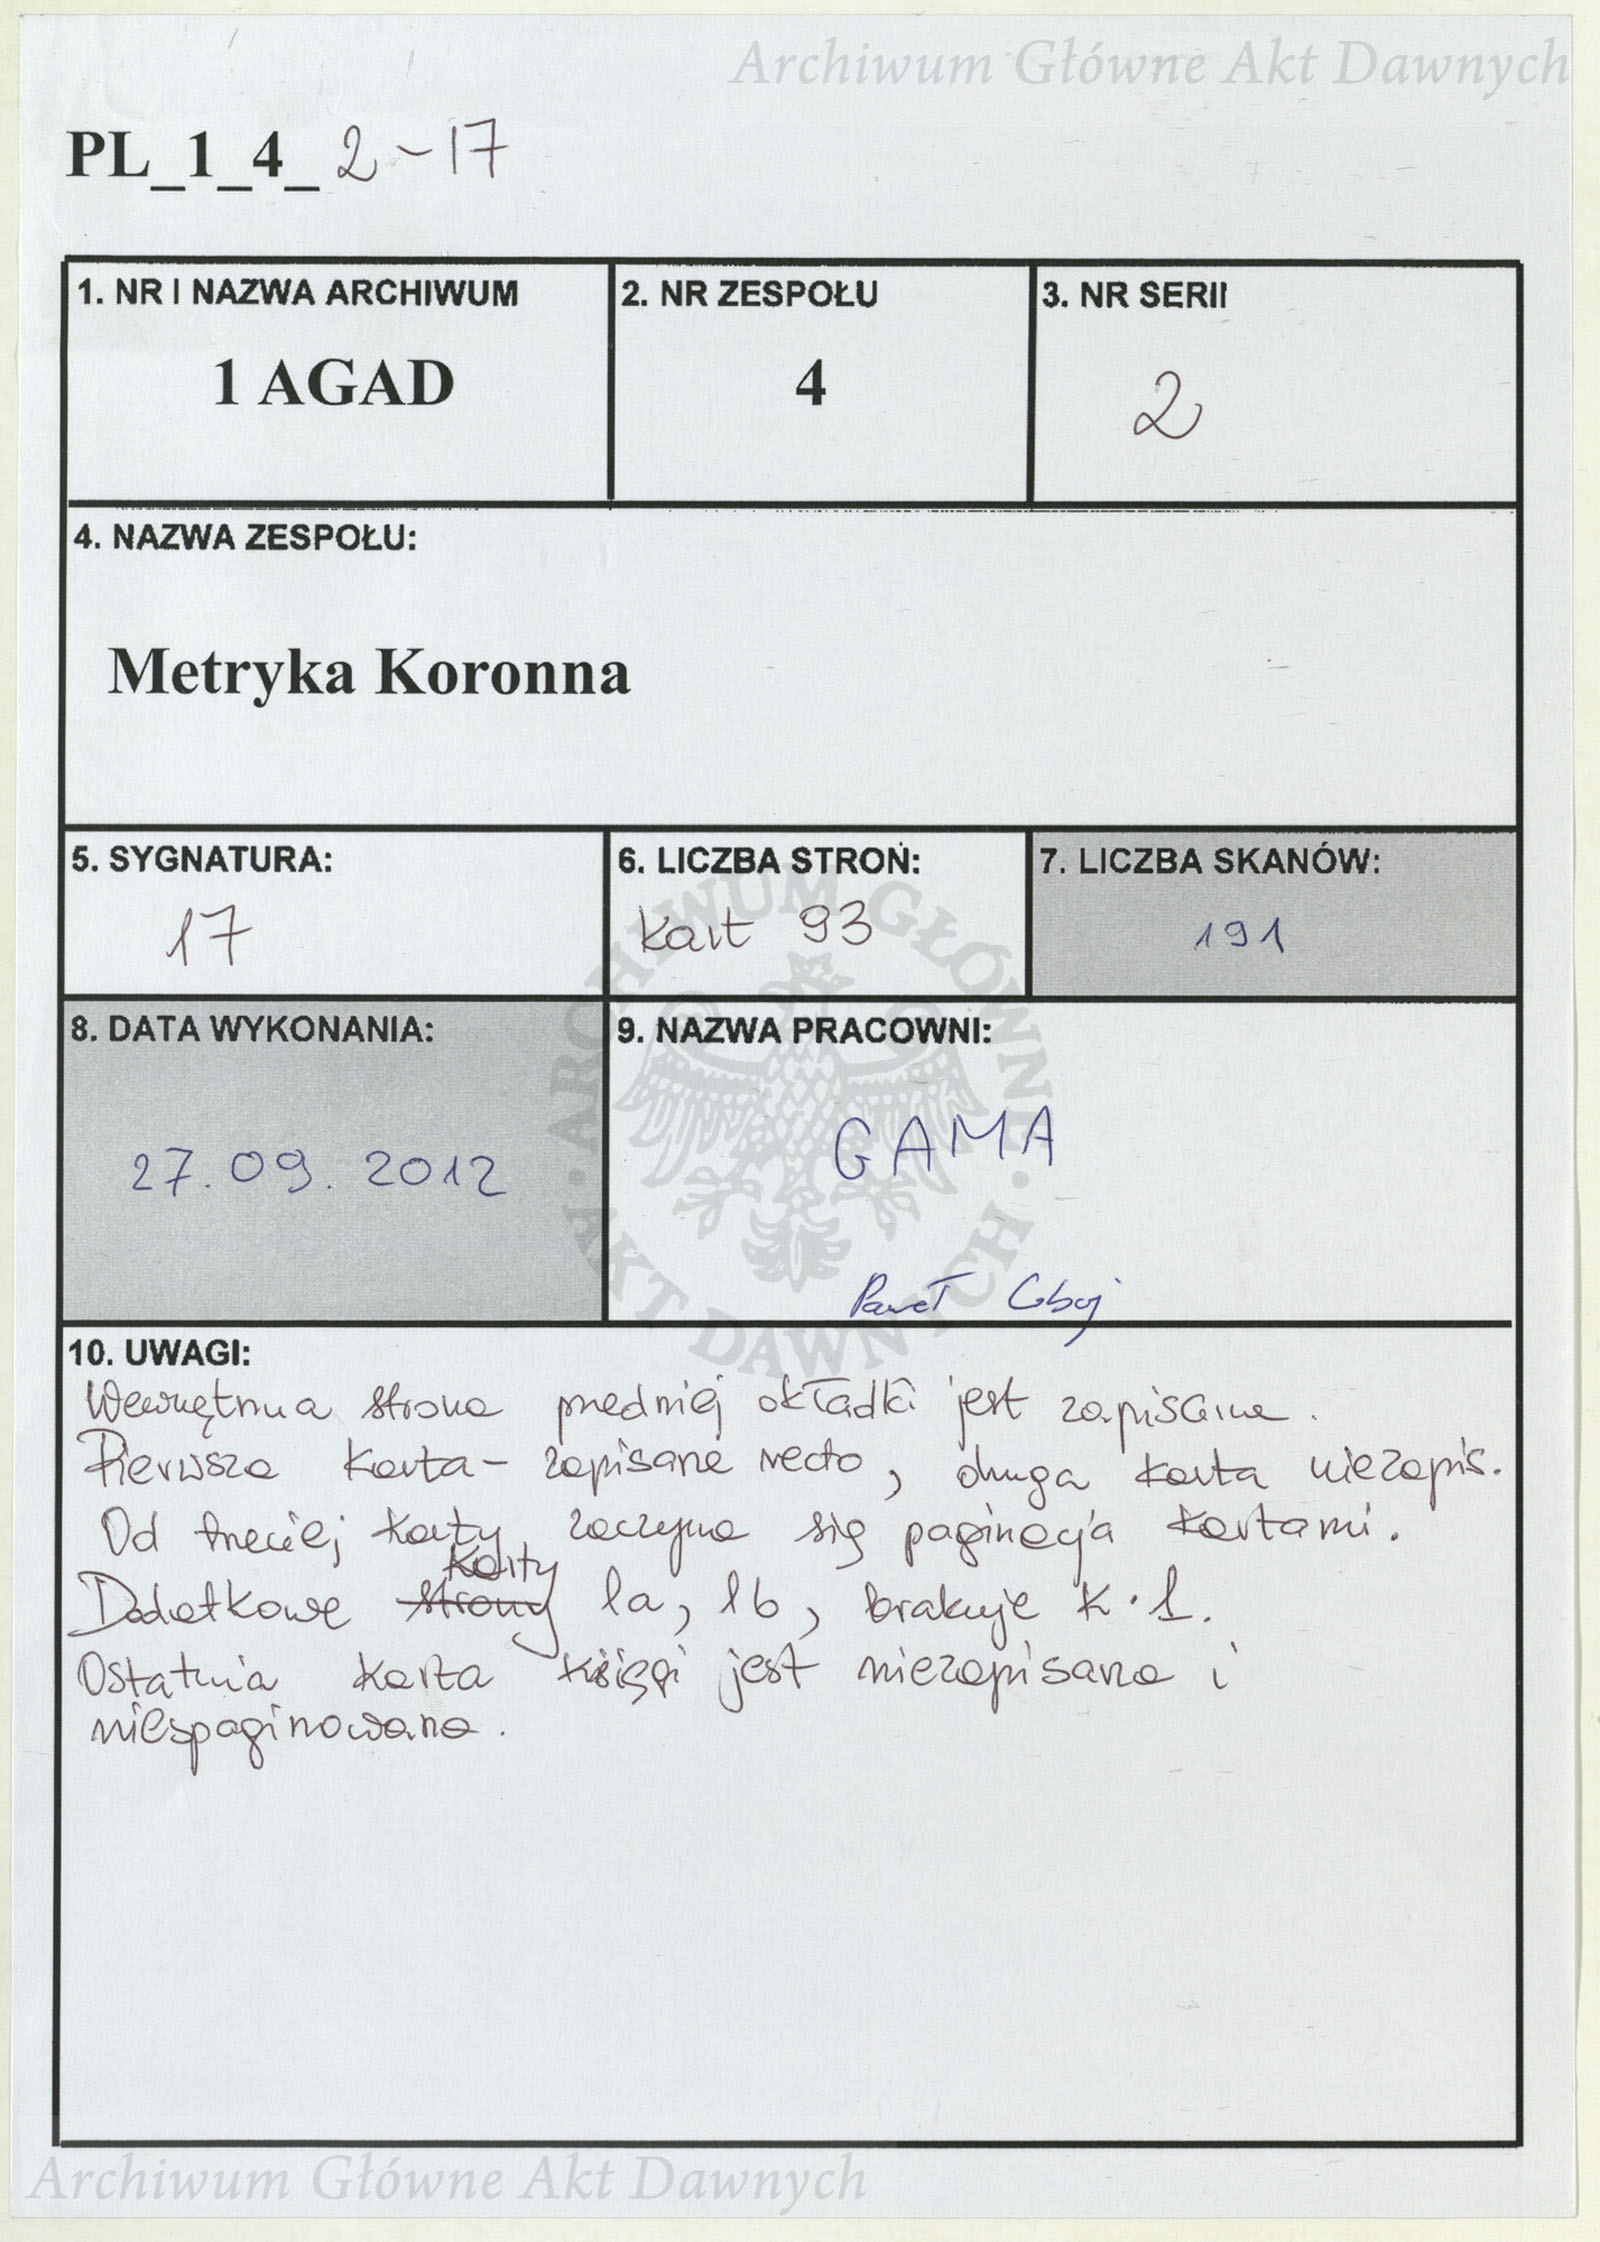 Archiwum Główne Akt Dawnych
PL_1_4_2-17
1. NR I NAZWA ARCHIWUM
1 AGAD
2. NR ZESPOŁU
4
3. NR SERII
2
4. NAZWA ZESPOŁU:
Metryka Koronna
5. SYGNATURA:
17
6. LICZBA STRON:
kart 93
7. LICZBA SKANÓW:
191
8. DATA WYKONANIA:
27.09.2012
9. NAZWA PRACOWNI:
GAMA
Paweł
ARCHIWUM GŁÓWNE AKT DAWNYCH
10. UWAGI:
Wewnętrzna strona przedniej okładki jest zapisana.
Pierwsza karta - zapisane recto, druga karta niezapis.
Od trzeciej karty zaczyna się paginacja kartami.
karty
Dodatkowe strony 1a, 1b, brakuje k. 1.
Ostatnia karta księgi jest niezapisana i
niespaginowana.
Archiwum Główne Akt Dawnych